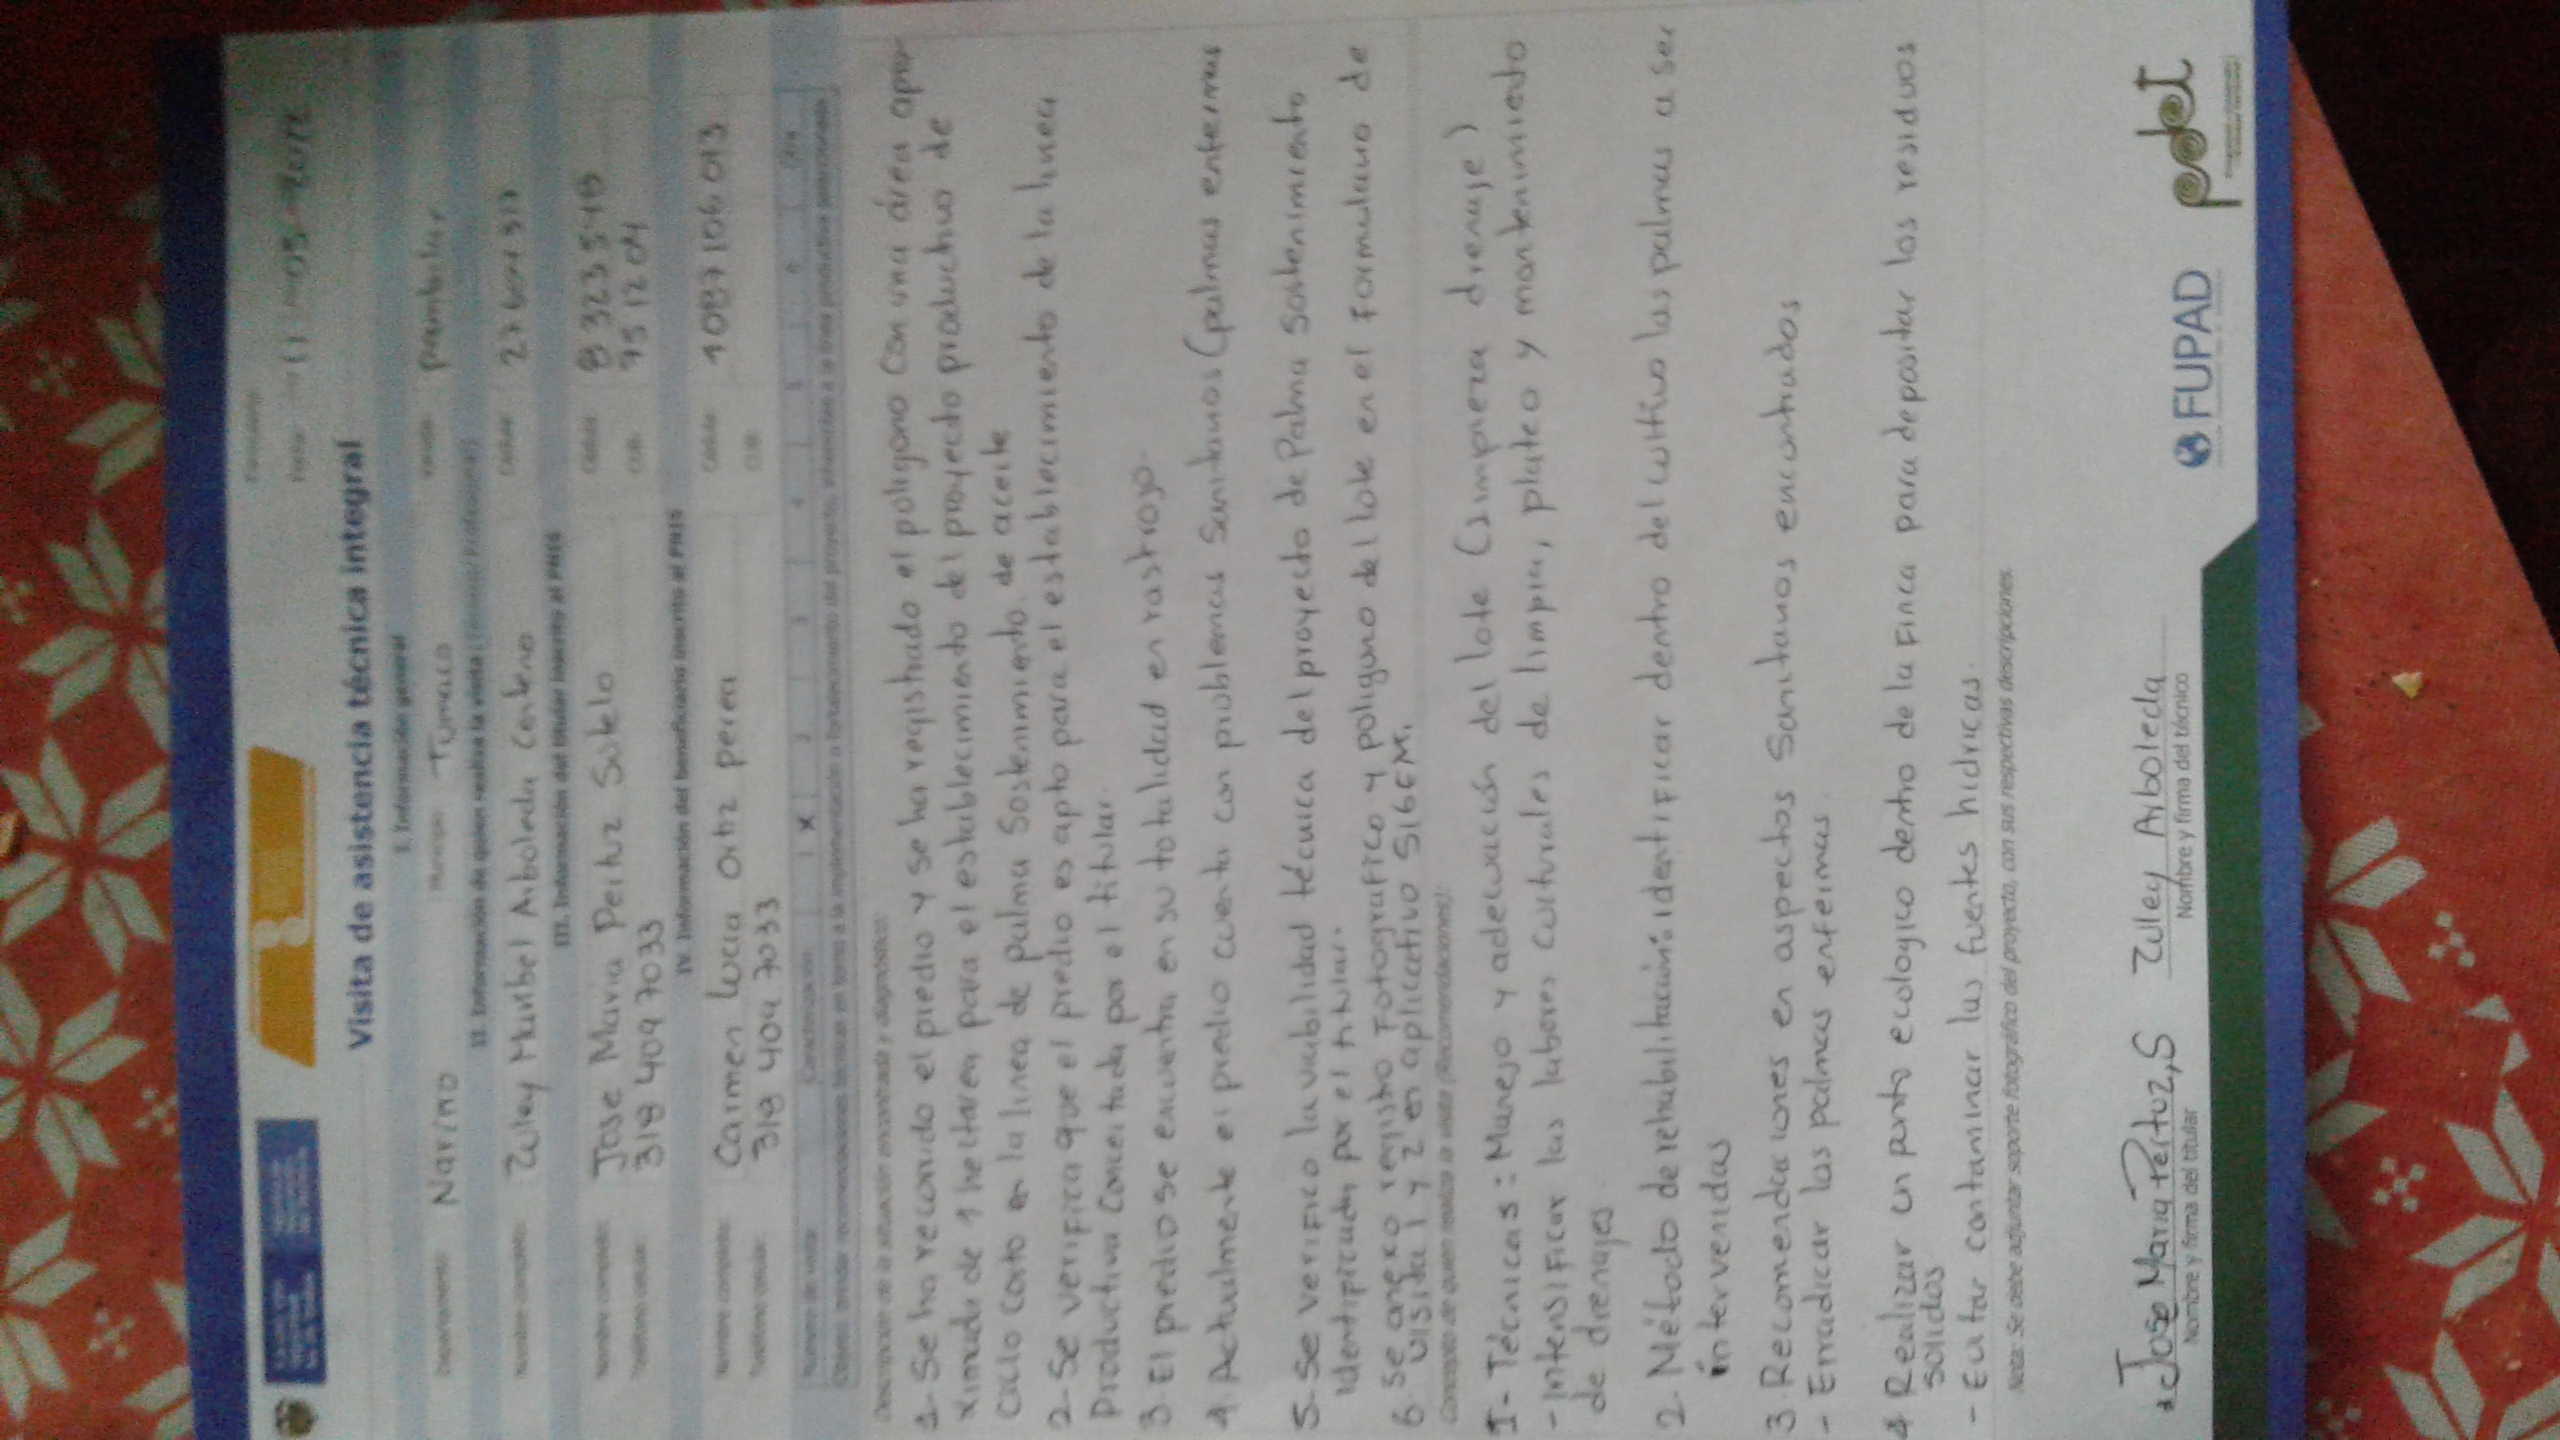 Visita de asistencia técnica integral
I. Información general
Departamento: Nariño Municipio: Tumaco Vereda: pambilar
II. Información de quien realiza la visita (Técnico/Profesional)
Nombre completo: Zuley Maribel Arboleda Centeno Cédula:
III. Información del titular inscrito al PNIS
Nombre completo: Jose Maria Pertuz Sotelo Cédula: 8 323 548
Teléfono celular: 318 409 7033 CUB: 95 12 04
IV. Información del beneficiario inscrito al PNIS
Nombre completo: Carmen Lucia Ortiz perea Cédula: 1 087 106 013
Teléfono celular: 318 404 7033 CUB:
Número de visita: Caracterización 1 X 2 3 4 5 6 Otra
Descripción de la situación encontrada y diagnóstico:
1- Se ha recorrido el predio y se ha registrado el poligono con una área apro-
ximada de 1 hectarea para el establecimiento del proyecto productivo de
Ciclo corto en la linea de palma Sostenimiento. de aceite
2- Se verifica que el predio es apto para el establecimiento de la linea
Productiva Concertada por el titular.
3- El predio se encuentra en su totalidad en rastrojo.
4. Actualmente el predio cuenta con problemas Sanitarios (palmas enfermas
5- Se verifico la viabilidad técnica del proyecto de Palma Sostenimiento
identificada por el titular.
6. Se anexo registro Fotografico y poligono del lote en el Formulario de
visita 1 y 2 en aplicativo SIGEM.
Concepto de quien realiza la visita (Recomendaciones):
1- Técnicas: Manejo y adecuación del lote (Limpieza drenaje)
- Intensificar las labores culturales de limpia, plateo y mantenimiento
de drenajes.
2- Método de rehabilitación: identificar dentro del cultivo las palmas a ser
intervenidas
3- Recomendaciones en aspectos Sanitarios encontrados
- Erradicar las palmas enfermas.
4 Realizar un punto ecologico dentro de la Finca para depositar los residuos
solidos
- Evitar contaminar las fuentes hidricas.
Nota: Se debe adjuntar soporte fotográfico del proyecto, con sus respectivas descripciones.
Jose Maria Pertuz, S Zuley Arboleda
Nombre y firma del titular Nombre y firma del técnico
FUPAD pdet